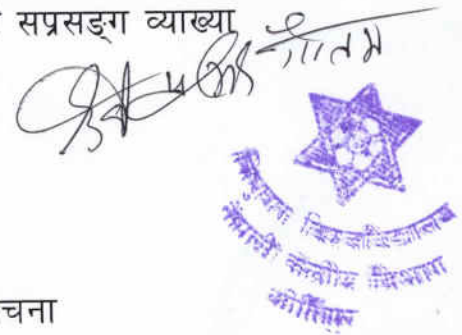 सप्रसङ्ग व्याख्या
गौतम
त्रिभुवन विश्वविद्यालय
नेपाली केन्द्रीय विभाग
कीर्तिपुर
चना